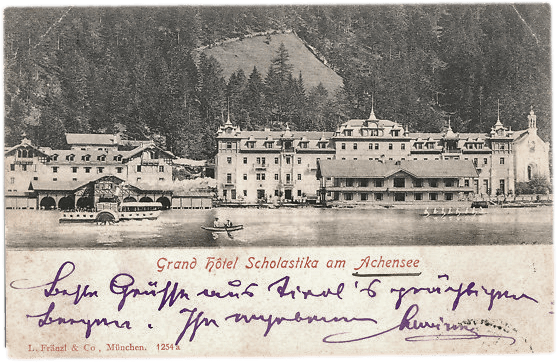 Grand Hôtel Scholastika am Achensee
Beste Grüsse aus Tirol's prächtigen
Bergen. Ihr
L. Fränzl & Co, München. 1254a